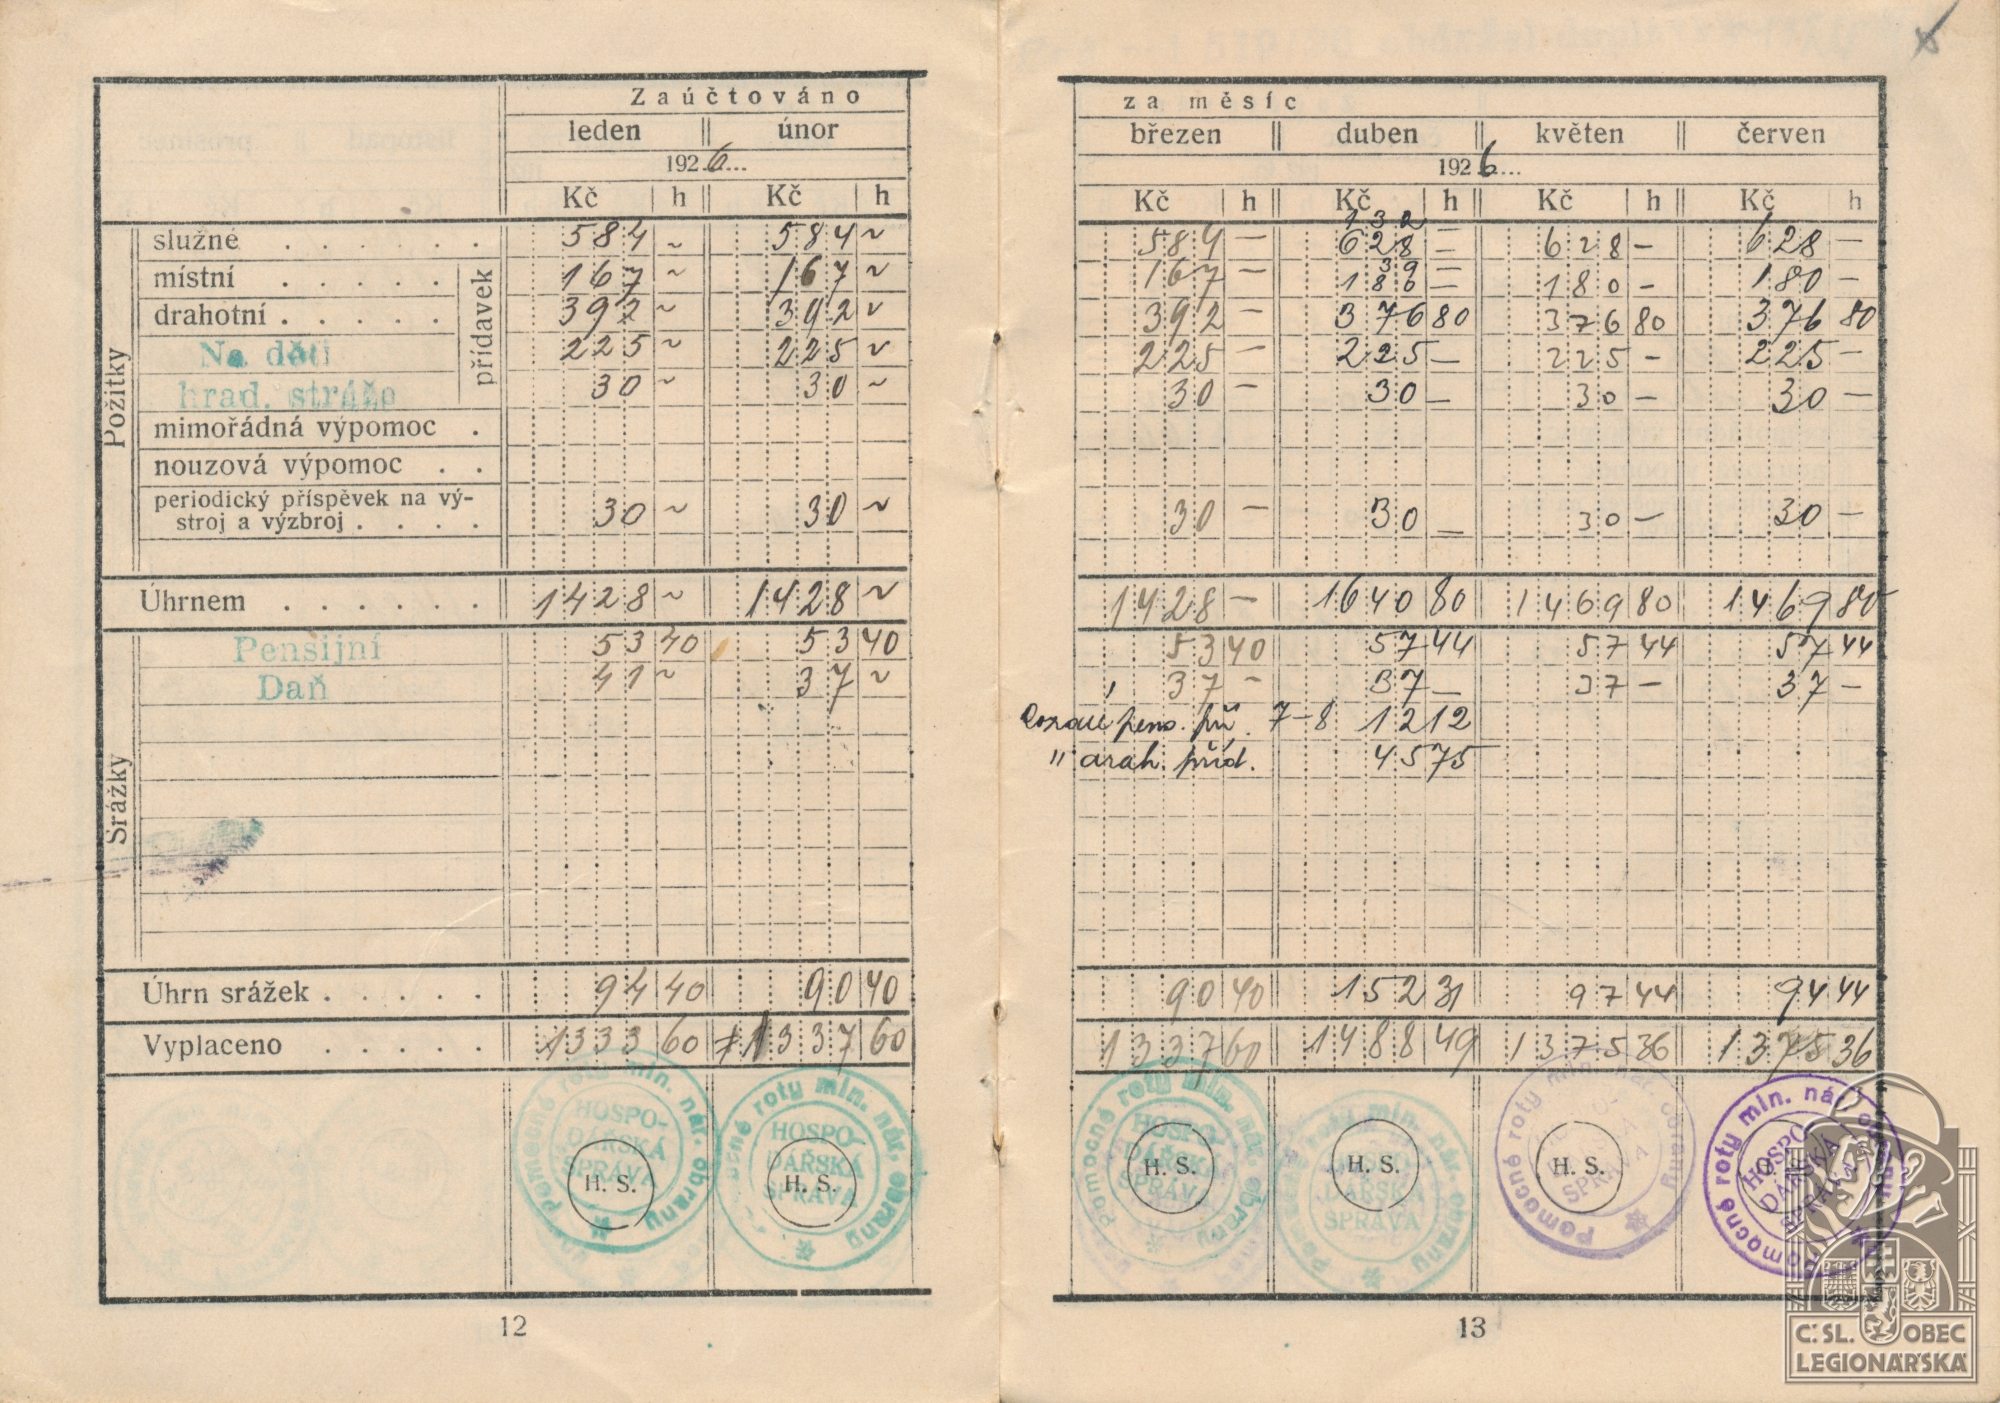 Zaúčtováno
leden únor
1926...
Kč h Kč h
Požitky
služné . . . . . . 584 ~ 584 ~
místní . . . . . 167 ~ 167 ~
drahotní . . . . . 392 ~ 392 ~
přídavek
Na děti 225 ~ 225 ~
hrad. stráže 30 ~ 30 ~
mimořádná výpomoc .
nouzová výpomoc . .
periodický příspěvek na vý-
stroj a výzbroj . . . . 30 ~ 30 ~
Úhrnem . . . . . . 1428 ~ 1428 ~
Srážky
Pensijní 53 40 53 40
Daň 41 ~ 37 ~
Úhrn srážek . . . . . 94 40 90 40
Vyplaceno . . . . . 1333 60 1337 60
Pomocné roty min. nár. obrany
HOSPO-
DÁŘSKÁ
SPRÁVA
H. S.
roty min. nár. obrany
HOSPO-
DÁŘSKÁ
SPRÁVA
H. S.
12
za měsíc
březen duben květen červen
1926...
Kč h Kč h Kč h Kč h
132
584 — 628 — 628 — 628 —
39
167 — 180 — 180 — 180 —
392 — 376 80 376 80 376 80
225 — 225 — 225 — 225 —
30 — 30 — 30 — 30 —
30 — 30 — 30 — 30 —
1428 — 1640 80 1469 80 1469 80
53 40 57 44 57 44 57 44
37 — 37 — 37 — 37 —
pens. 7-8 12 12
" drah. příd. 45 75
90 40 152 31 97 44 94 44
1337 60 1488 49 1375 36 1375 36
Pomocné roty min. nár. obrany
HOSPO-
DÁŘSKÁ
SPRÁVA
H. S.
roty min. nár. obrany
DÁŘSKÁ
SPRÁVA
H. S.
Pomocné roty min. nár. obrany
SPRÁVA
H. S.
Pomocné roty min. nár. obrany
HOSPO-
DÁŘSKÁ
SPRÁVA
13
Č. SL. OBEC
LEGIONÁŘSKÁ